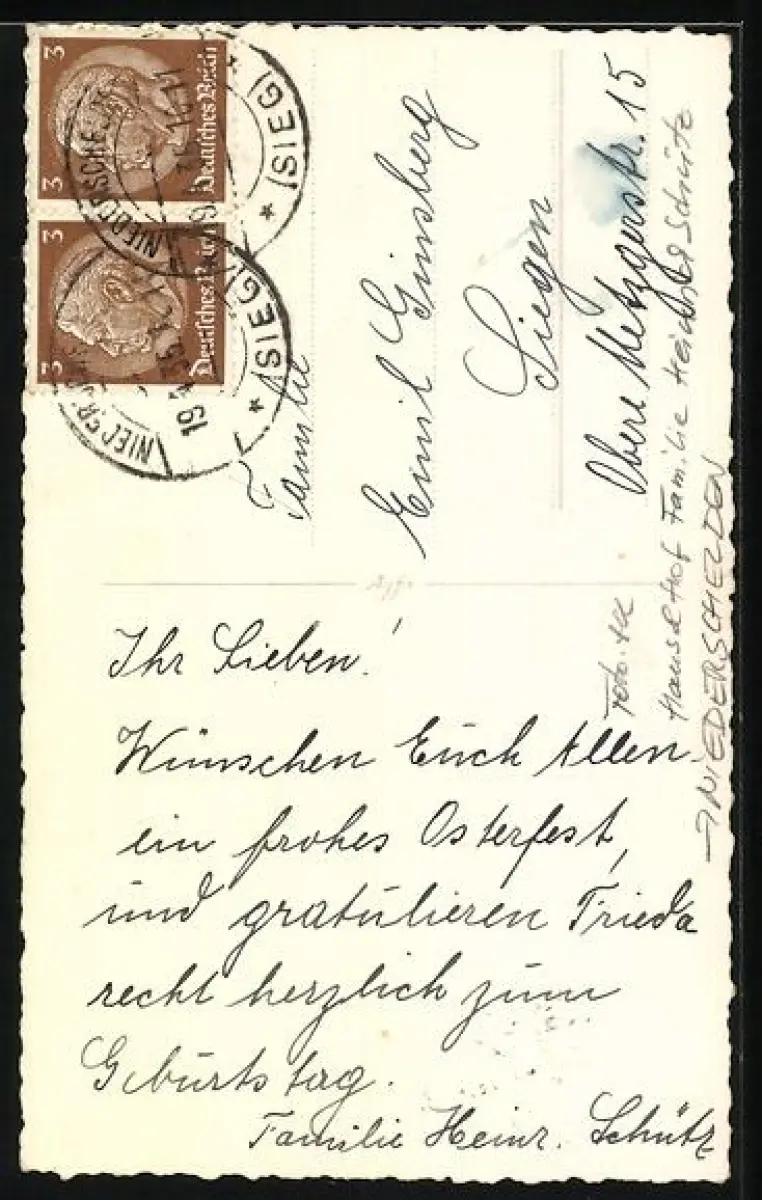 3
Deutsches Reich
3
3
Deutsches Reich
3
(SIEG)
*
(SIEG)
*
19
Familie
Emil Ginsberg
Siegen
Obere Metzgerstr. 15
Familie Heiner Schütz
→ NIEDERSCHELDEN
Ihr Lieben!
Wünschen Euch Allen
ein frohes Osterfest,
und gratulieren Frieda
recht herzlich zum
Geburtstag.
Familie Heinr. Schütz